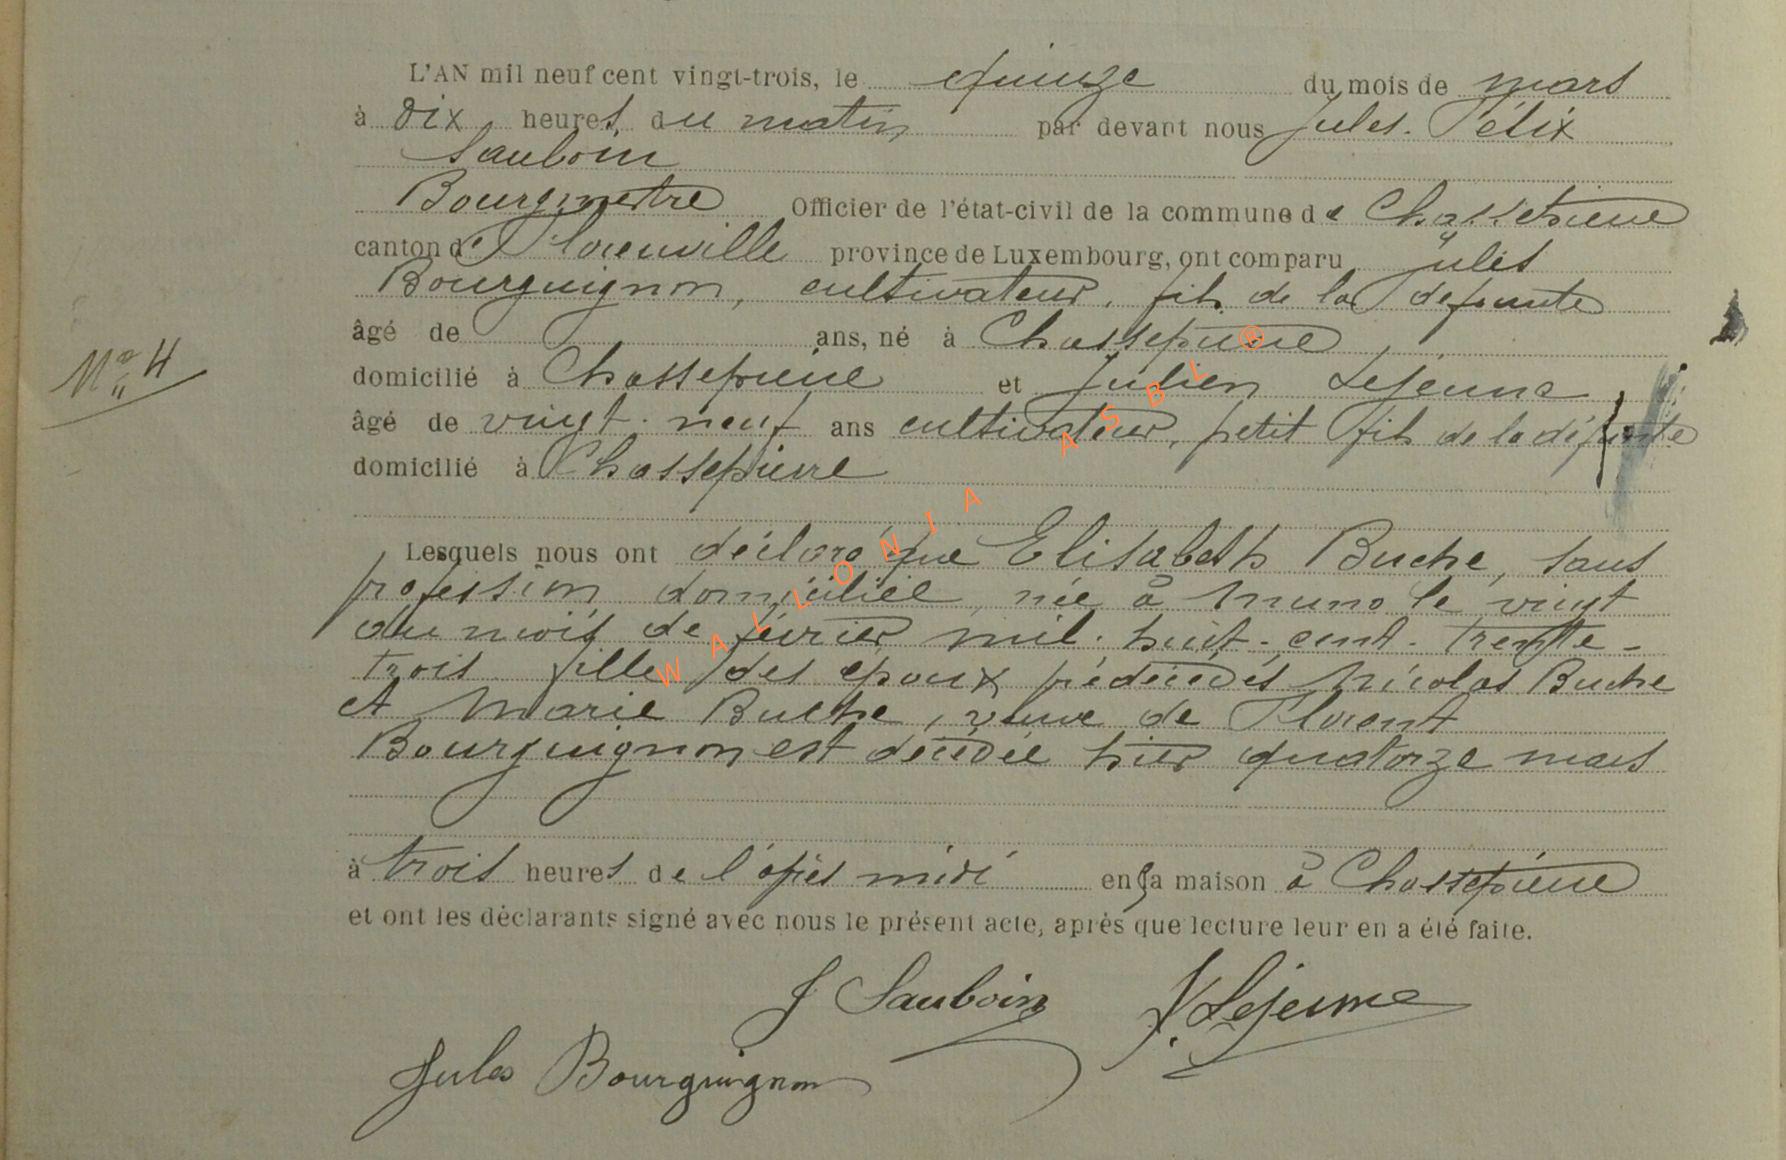 L'AN mil neuf cent vingt-trois, le quinze du mois de mars
à dix heures du matin par devant nous Jules-Félix
Sauboin
Bourgmestre Officier de l'état-civil de la commune de Chassepierre
canton de Florenville province de Luxembourg, ont comparu Jules
Bourguignon, cultivateur, fils de la défunte
âgé de ans, né à Chassepierre
N° 4
domicilié à Chassepierre et Julien Lejeune
âgé de vingt-neuf ans cultivateur, petit fils de la défunte
domicilié à Chassepierre
Lesquels nous ont déclaré que Elisabeth Buche, sans
profession domiciliée, née à Muno le vingt
du mois de février mil-huit-cent-trente-
trois fille des époux prédécédés Nicolas Buche
et Marie Buche, veuve de Florent
Bourguignon est décédée hier quatorze mars
à trois heures de l'après midi en sa maison à Chassepierre
et ont les déclarants signé avec nous le présent acte, après que lecture leur en a été faite.
J Sauboin J. Lejeune
Jules Bourguignon
WALLONIA ASBL ®